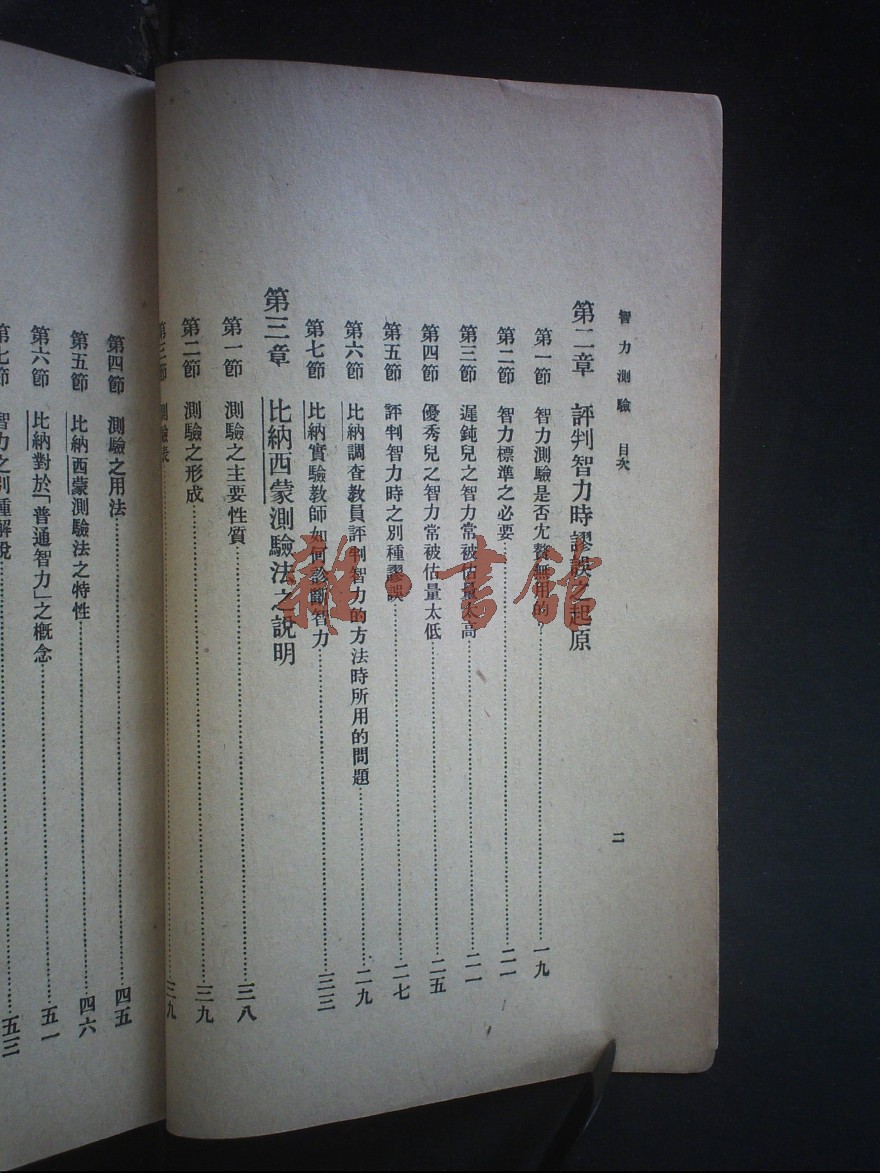 智力測驗 目次
二
第二章 評判智力時謬誤之起原
第一節 智力測驗是否冗贅無用的？……一九
第二節 智力標準之必要……二一
第三節 遲鈍兒之智力常被估量太高……二一
第四節 優秀兒之智力常被估量太低……二五
第五節 評判智力時之別種謬誤……二七
第六節 比納調查教員評判智力的方法時所用的問題……二九
第七節 比納實驗教師如何診斷智力……三三
第三章 比納西蒙測驗法之說明
第一節 測驗之主要性質……三八
第二節 測驗之形成……三九
第三節 測驗表……三九
第四節 測驗之用法……四五
第五節 比納西蒙測驗法之特性……四六
第六節 比納對於「普通智力」之概念……五一
第七節 智力之別種解說……五三
雜·書館